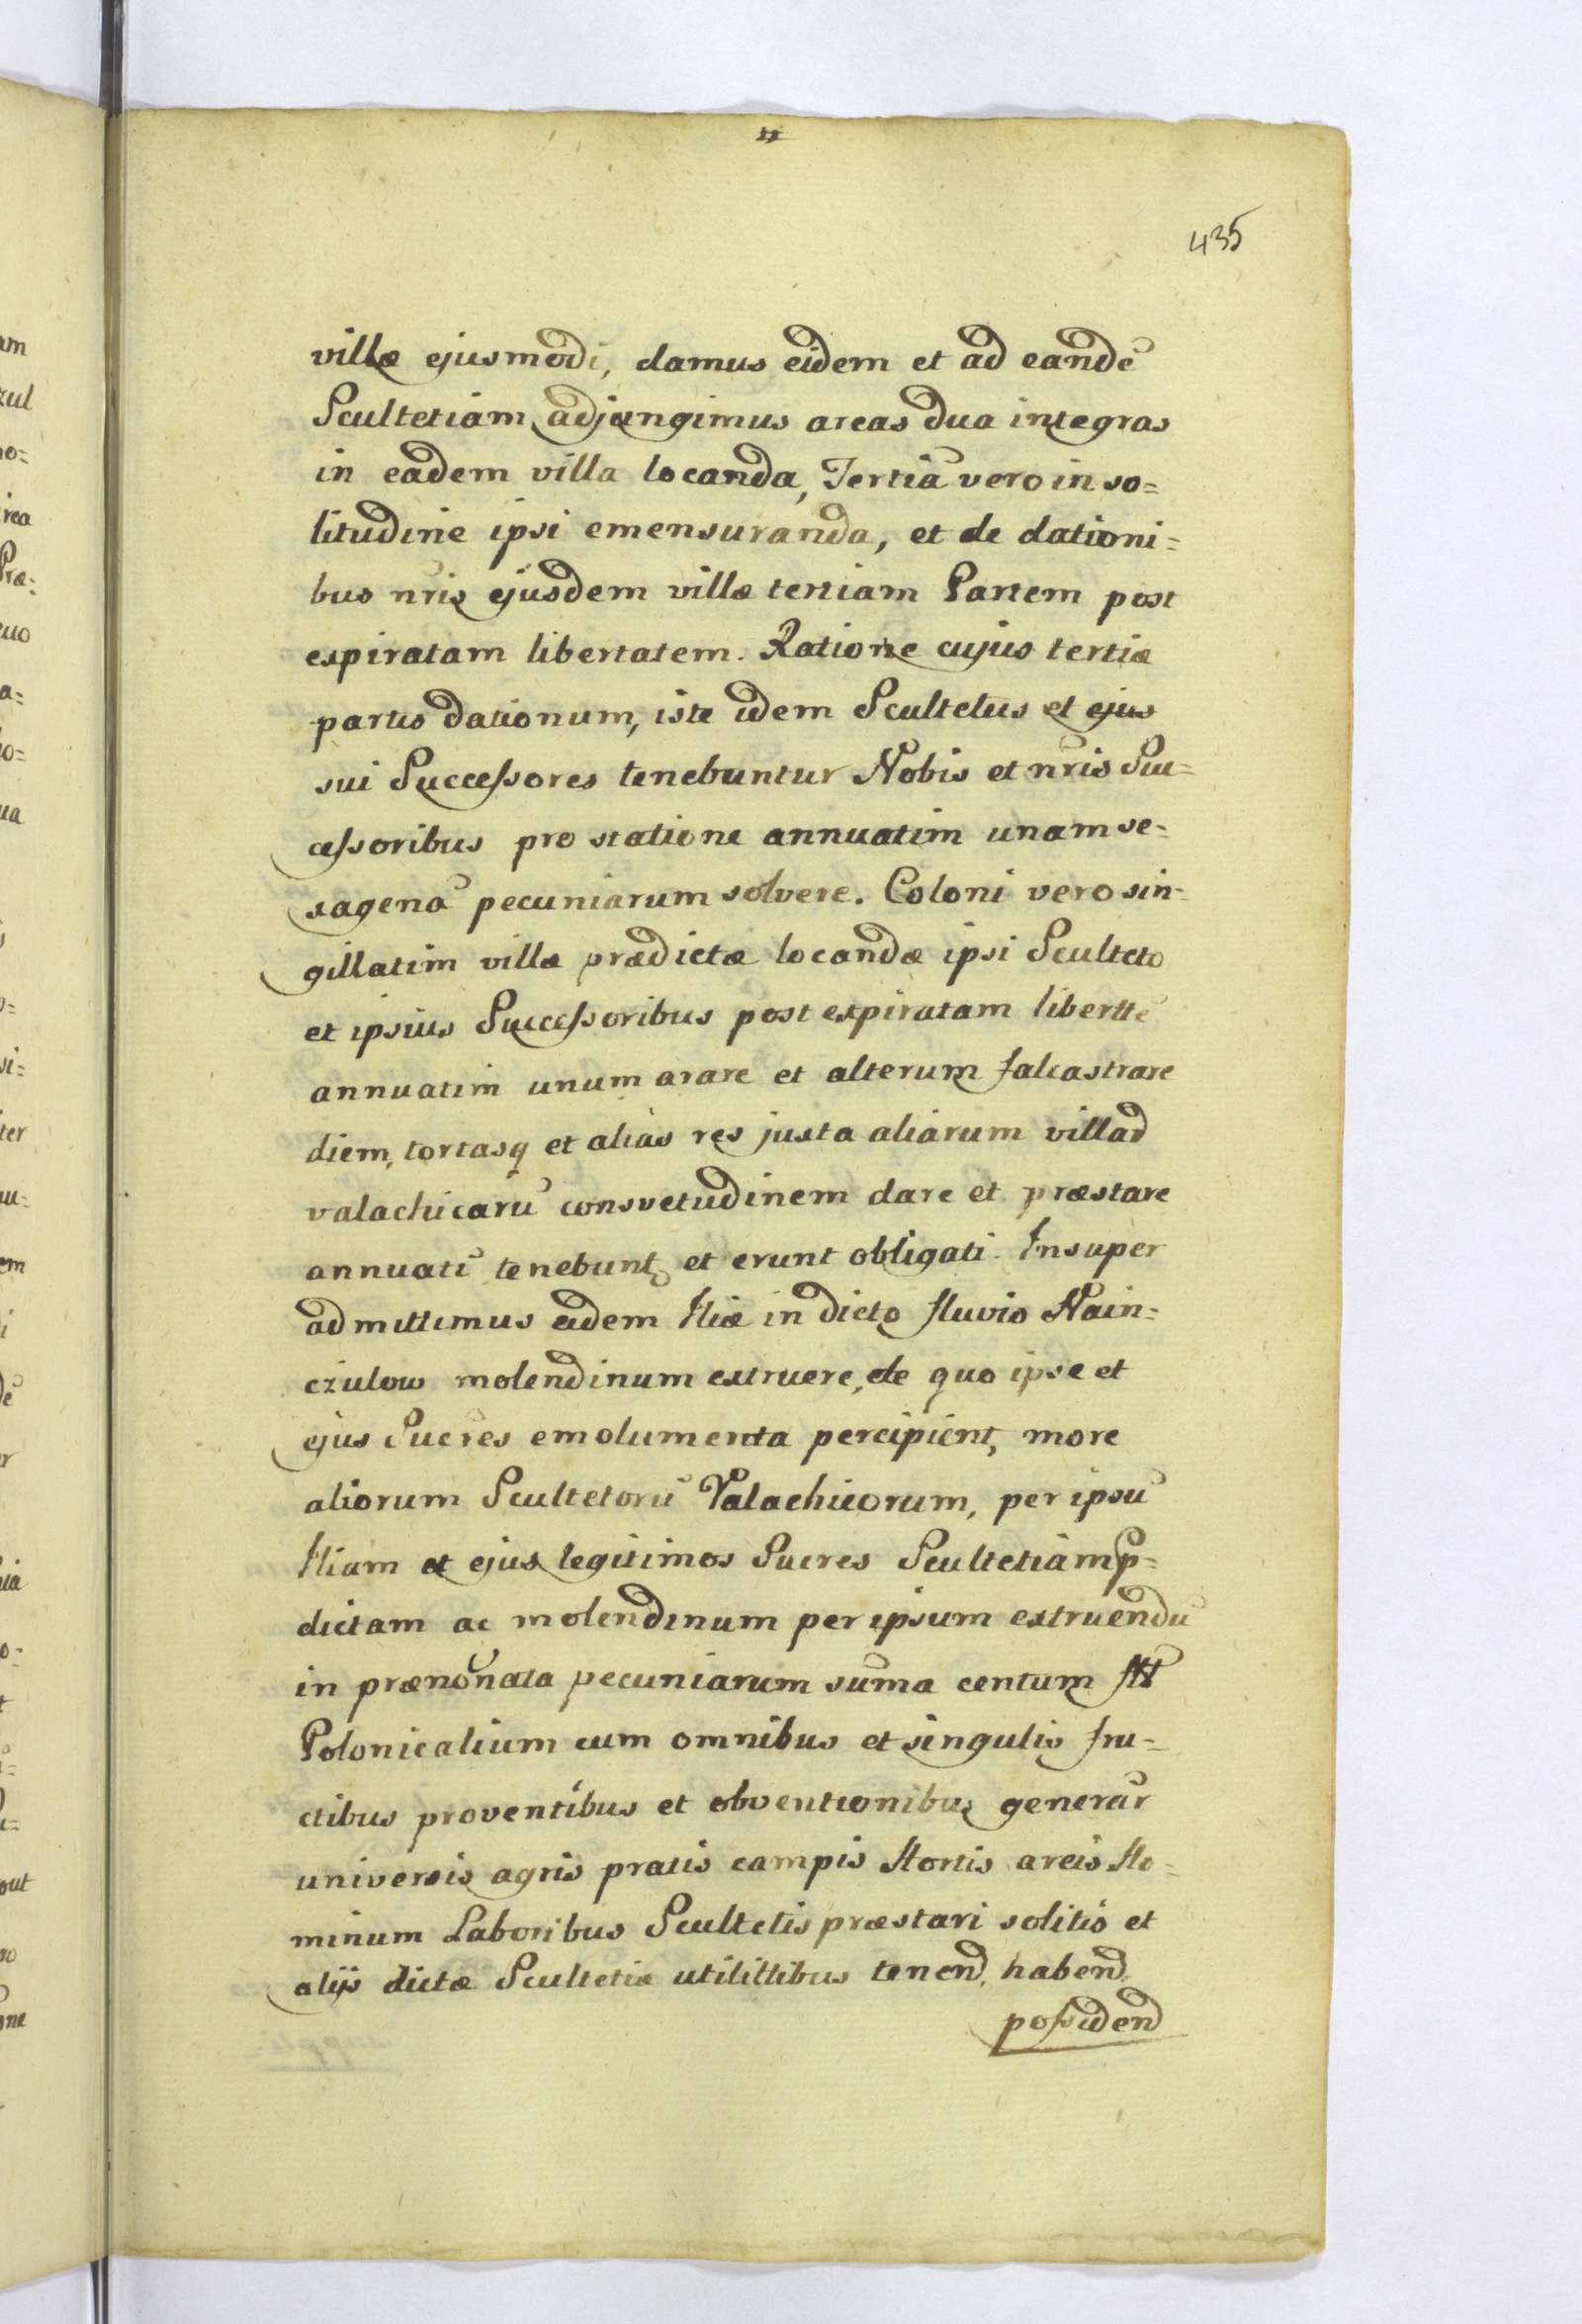 435
villæ ejusmodi, damus eidem et ad eandē
Scultetiam adjungimus areas dua integras
in eadem villa locanda, Tertiā vero in so=
litudine ipsi emensuranda, et de dationi=
bus nr̄is ejusdem villæ tertiam Partem post
expiratam libertatem. Ratione cujus tertiæ
partis dationum, iste idem Scultetus et ejus
sui Successores tenebuntur Nobis et nr̄is Suc=
cessoribus pro statione annuatim unam se=
xagenā pecuniarum solvere. Coloni vero sin=
gillatim villæ prædictæ locandæ ipsi Sculteto
et ipsius Successoribus post expiratam libertt̄ē
annuatim unum arare et alterum falcastrare
diem, tortasq et alias res juxta aliarum villar̄
valachicarū consvetudinem dare et præstare
annuatī tenebunt, et erunt obligati. Insuper
admittimus eidem Iliæ in dicto fluvio Nain=
czulow molendinum extruere, de quo ipse et
ejus Sucr̄es emolumenta percipient, more
aliorum Scultetorū Valachicorum, per ipsū
Iliam et ejus legitimos Sucres Scultetiam p=
dictam ac molendinum per ipsum extruendū
in prænōnata pecuniarum sūma centum M
Polonicalium cum omnibus et singulis fru=
ctibus proventibus et obventionibus generar̄
universis agris pratis campis Hortis areis Ho=
minum Laboribus Scultetis præstari solitis et
alijs dictæ Scultetiæ utilittibus tenend, habend,
possidend